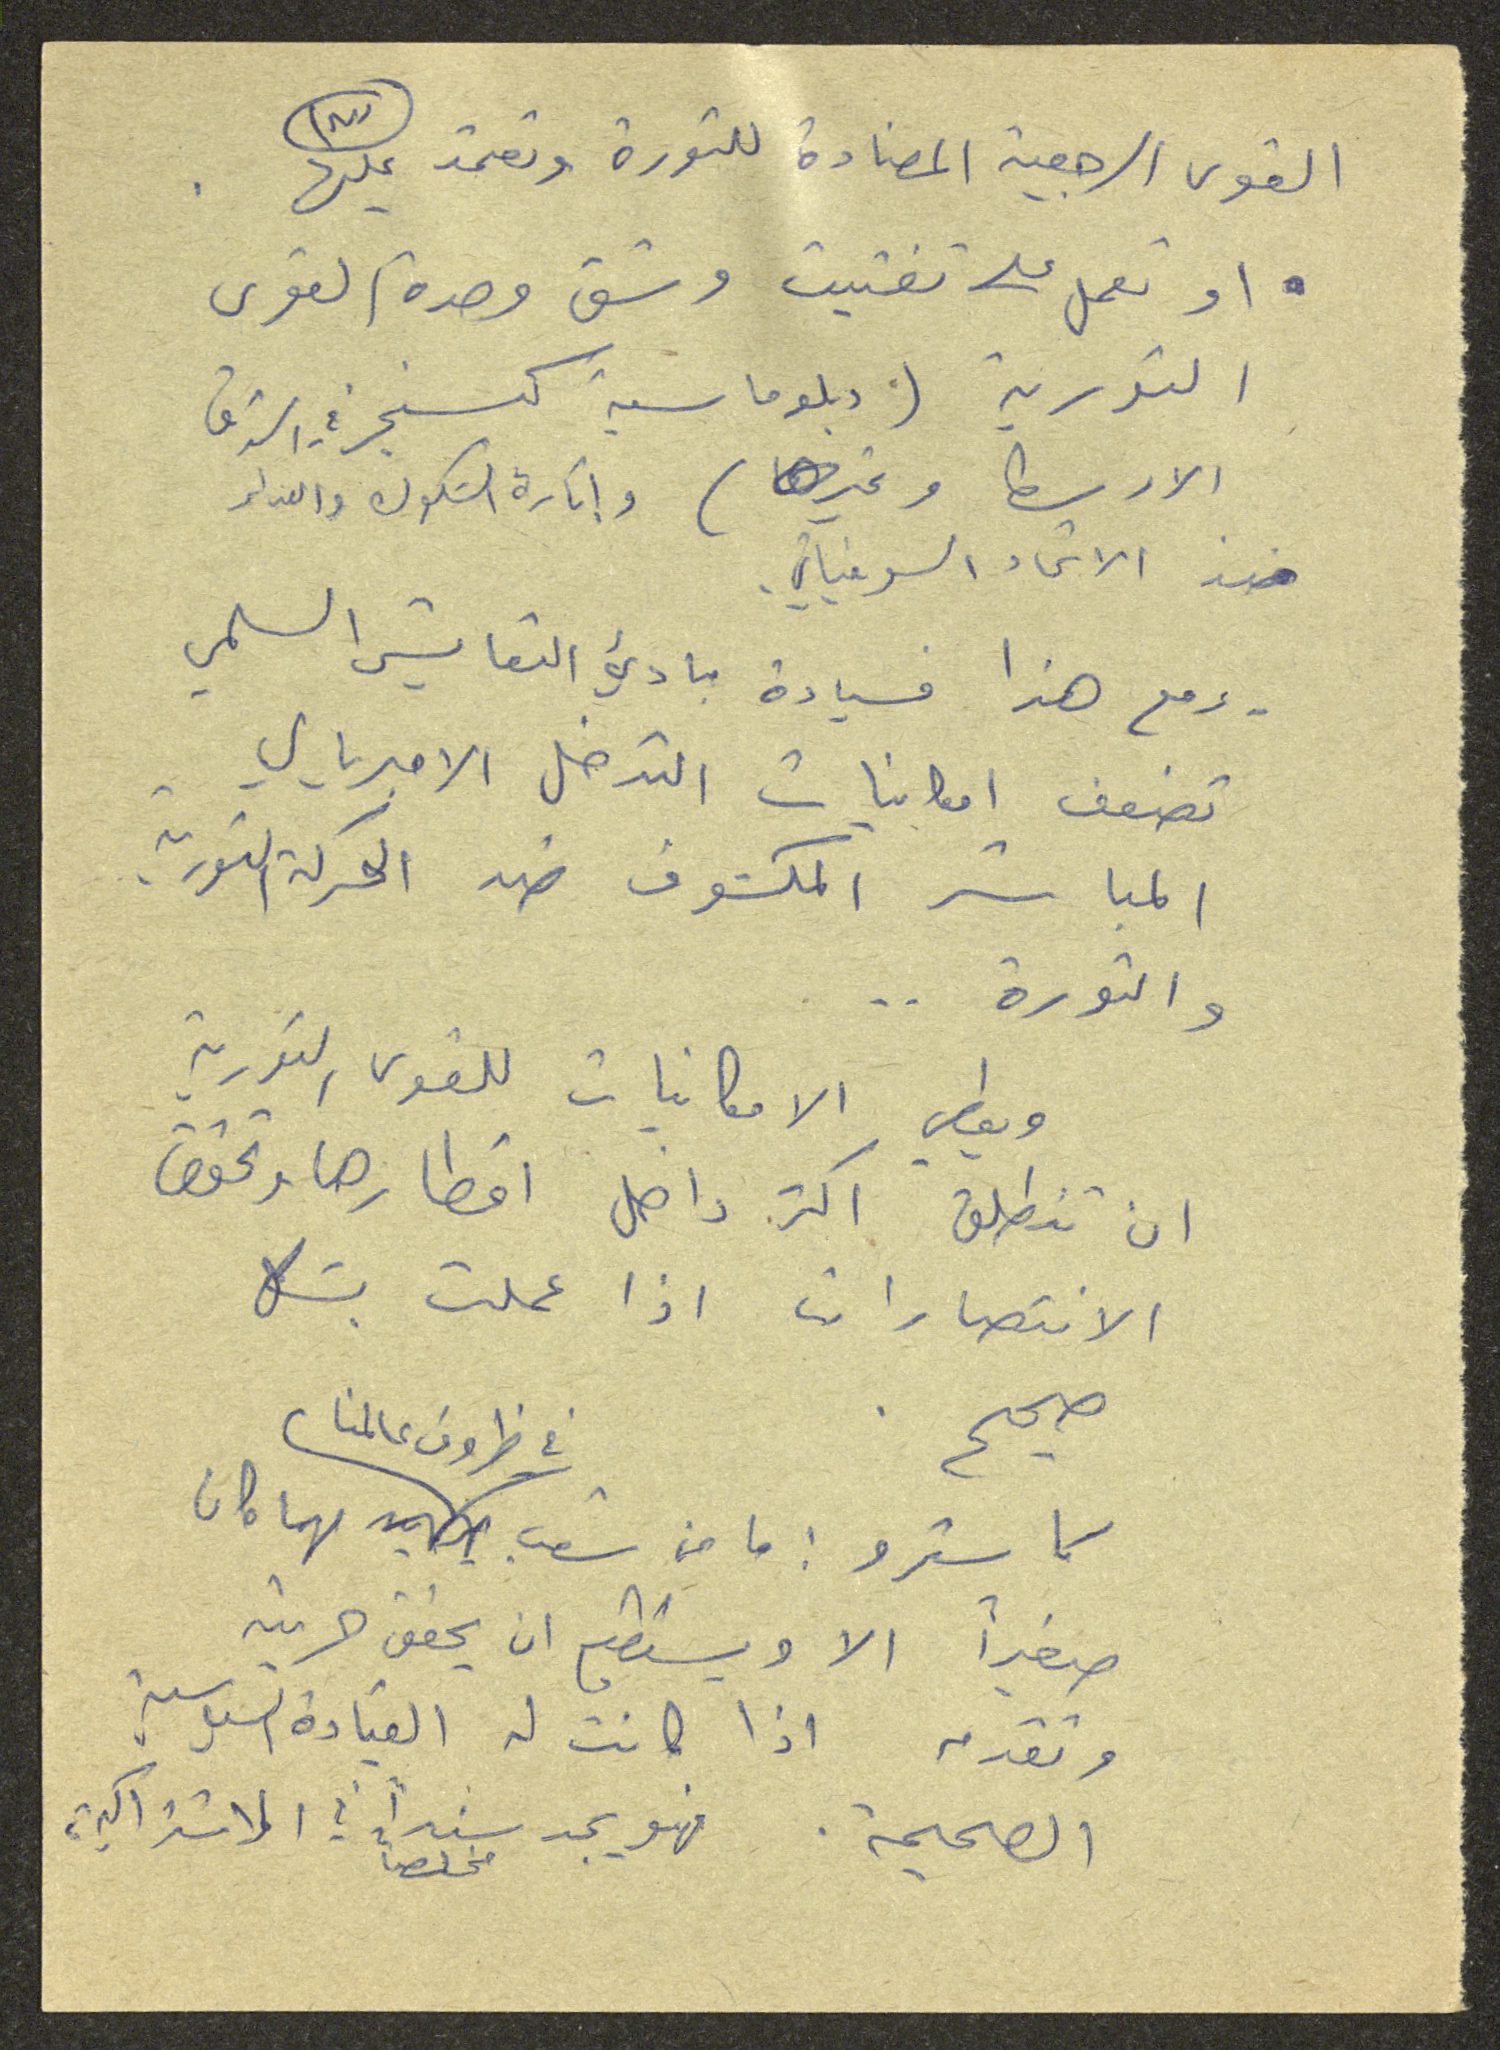 القوى الرجعية المضادة للثورة وتعتمد عليها .
• او تعمل على تفتيت وشق وحدة القوى
الثورية (دبلوماسية كسنجر في الشرق
الاوسط وغيرها) واثارة الشكوك والعداء
ضد الاتحاد السوفياتي.
- ومع هذا فسيادة مبادئ التعايش السلمي
تضعف امكانيات التدخل الامبريالي
المباشر المكشوف ضد الحركة الثورية
والثورة ..
ويعطي الامكانيات للقوى الثورية
ان تنطلق اكثر داخل اقطارها وتحقق
الانتصارات اذا عملت بشكل
صحيح .
في ظروف عالمنا
كاسترو : ما من شعب مهما كان
صغيراً الا ويستطيع ان يحقق حريته
وتقدمه اذا كانت له القيادة السياسية
الصحيحة . فهو يجد سنداً في الاشتراكية،
مخلصاً